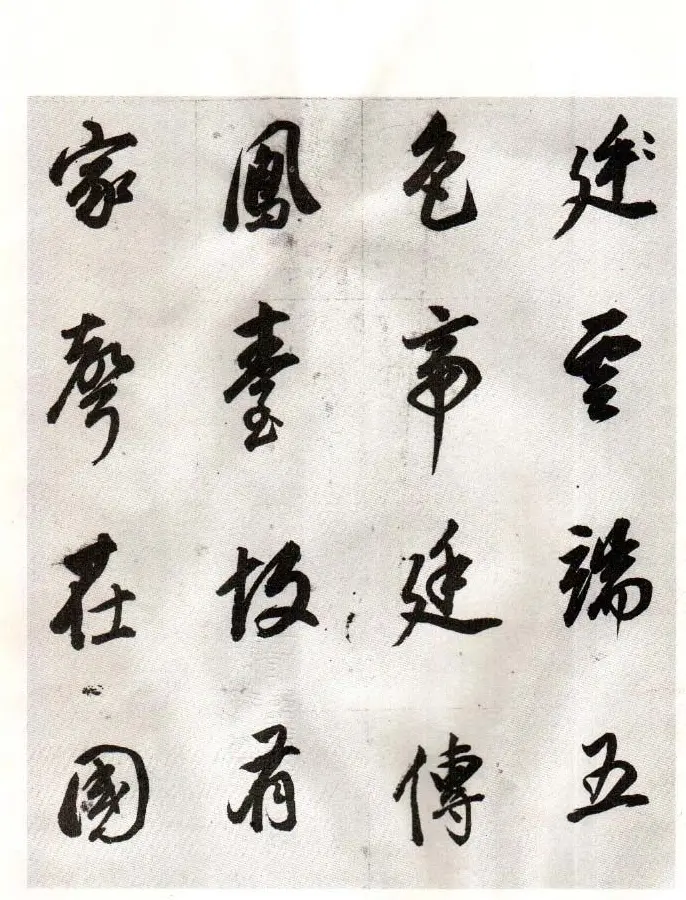 雲端五
色帝廷傳
鳳臺故有
家聲在國